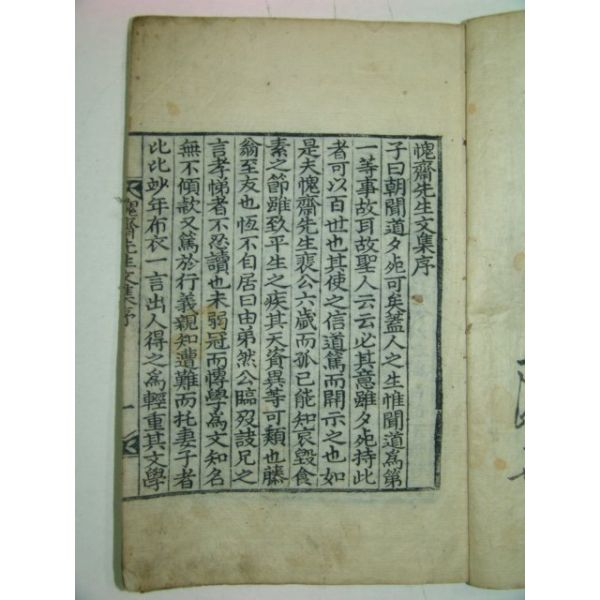 愧齋先生文集序
子曰朝聞道夕死可矣蓋人之生惟聞道爲第
一等事故耳故聖人云云必其意雖夕死持此
者可以百世也其使之信道篤而開示之也如
是夫愧齋先生裴公六歲而孤已能知哀毀食
素之節雖致平生之疾其天資異等可類也藤
翁至友也恆不自居曰由弟然公臨歿鼓兄之
言孝悌者不忍讀也未弱冠而博學爲文知名
無不傾款又篤於行義親知遭難而托妻子者
比比妙年布衣一言出人得之爲輕重其文學
愧齋先生文集序
一